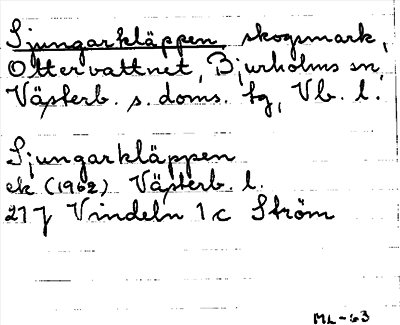 Sjungarkläppen skogsmark,
Ottervattnet, Bjurholms sn,
Västerb. s. doms. tg, Vb. l.
Sjungarkläppen
ek (1962) Västerb. l.
21 J Vindeln 1 c Ström
ML-63